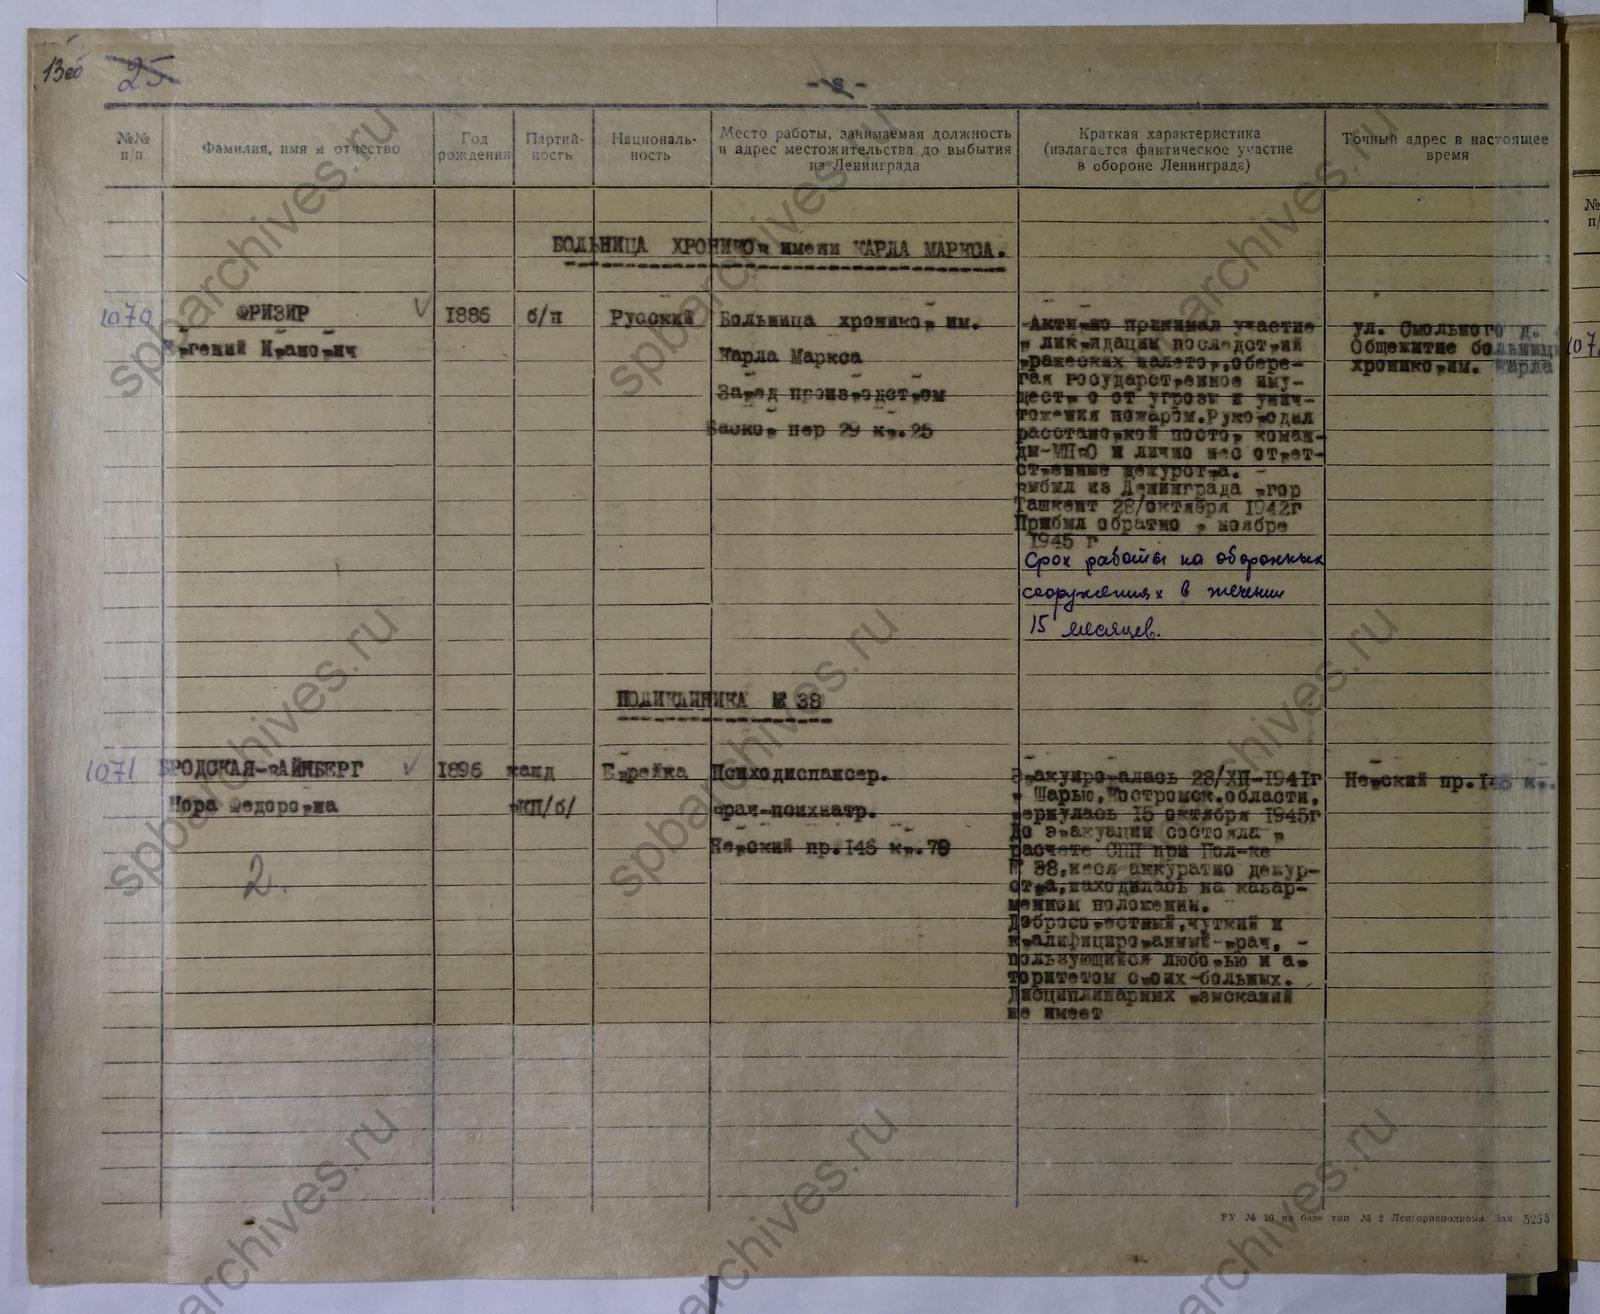 13об
25
- 8 -
№№ п/п
Фамилия, имя и отчество
Год рождения
Партий-
ность
Националь-
ность
Место работы, занимаемая должность
и адрес местожительства до выбытия
из Ленинграда
Краткая характеристика
(излагается фактическое участие
в обороне Ленинграда)
Точный адрес в настоящее
время
БОЛЬНИЦА ХРОНИКОв имени КАРЛА МАРКСА.
1070
ФРИЗИР
Евгений Иванович
1886
б/п
Русский
Больница хроников им.
Карла Маркса
Завед производством
Басков пер 29 кв.25
Активно принимал участие
в ликвидации последствий
вражеских налетов,обере-
гая государственное иму-
щество от угрозы и унич-
тожения пожаром.Руководил
расстановкой постов коман-
ды-МПвО и лично нес ответ-
ственные дежурства. -
выбыл из Ленинграда вгор
Ташкент 28/октября 1942г
Прибыл обратно в ноябре
1945 г
Срок работы на оборонных
сооружениях в течении
15 месяцев.
ул. Смольного д.
Общежитие больницы
хроников им. Карла
ПОЛИКЛИНИКА № 38
1071
БРОДСКАЯ-вАЙНБЕРГ
Нора Федоровна
2.
1896
канд
вКП/б/
Еврейка
Психодиспансер.
врач-психиатр.
Невский пр.146 кв.70
Эвакуировалась 28/ХП-1941г
в Шарью,Костромск.области,
вернулась 15 октября 1945г
До эвакуации состояла в
расчете СПП при Пол-ке
№ 38,неся аккуратно дежур-
ства,находилась на казар-
менном положении.
Добросовестный,чуткий и
квалифицированный-врач, -
пользующийся любовью и ав
торитетом своих-больных.
Дисциплинарных взысканий
не имеет
Невский пр.146 кв.
РУ № 20 на базе тип № 2 Ленгорисполкома. Зак 5255
№
п/
107
spbarchives.ru
spbarchives.ru
spbarchives.ru
spbarchives.ru
spbarchives.ru
spbarchives.ru
spbarchives.ru
spbarchives.ru
spbarchives.ru